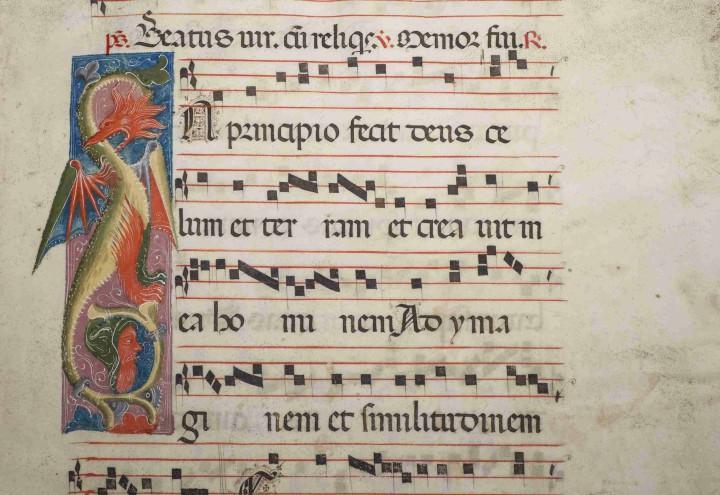 ps. Beatus uir. cū reliq̄s. v. Memor fui. R.
IN principio fecit deus ce
lum et ter ram et crea uit in
ea ho mi nem Ad yma
gi nem et similitudinem